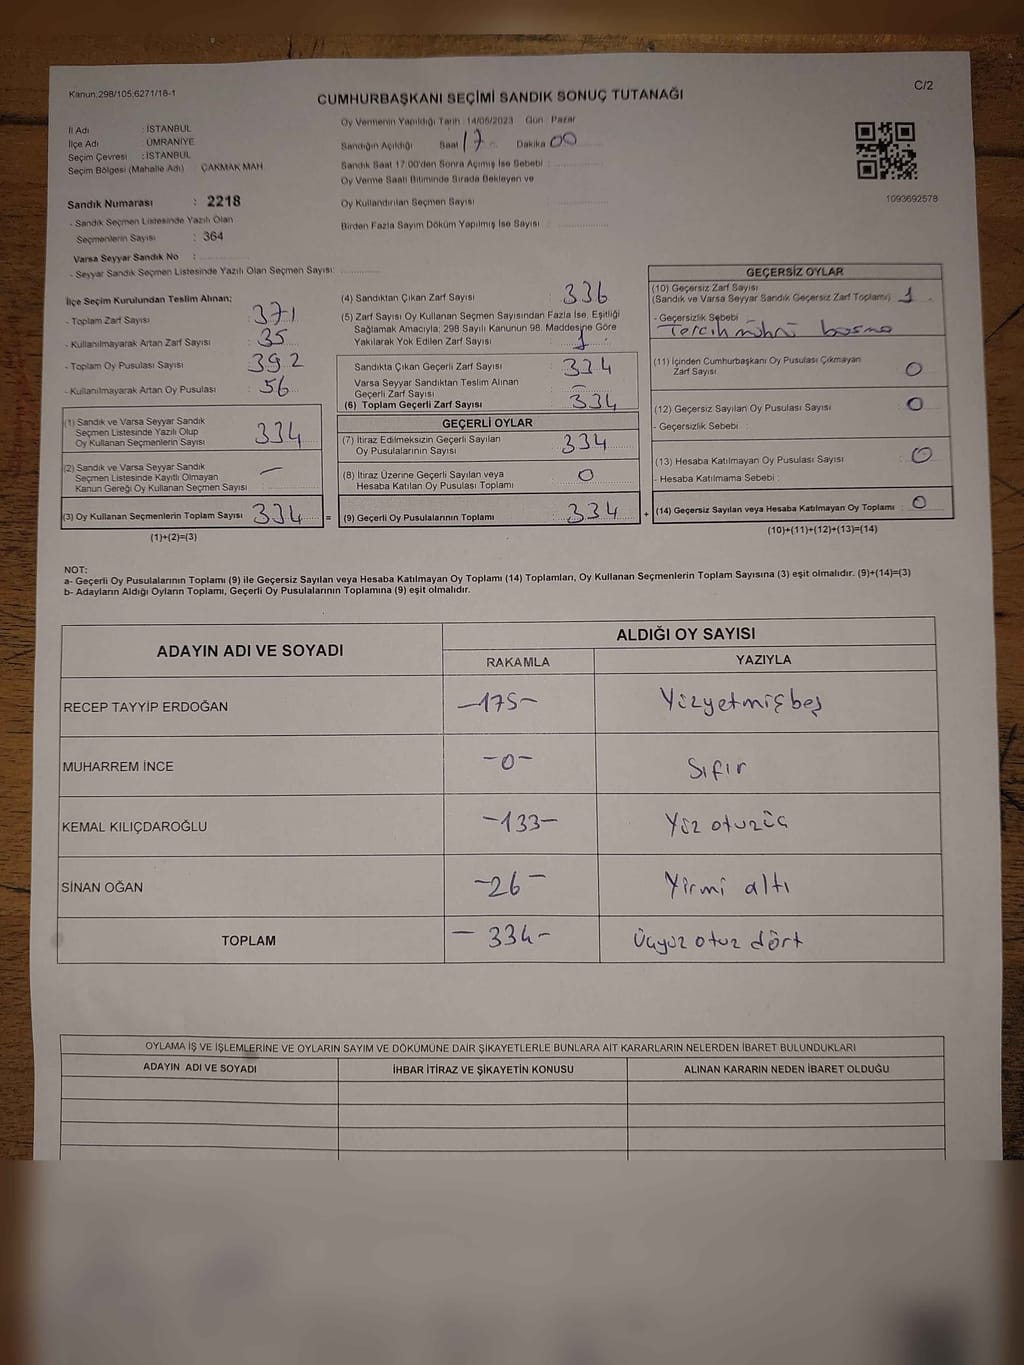 Kanun:298/105,6271/18-1
C/2
CUMHURBAŞKANI SEÇİMİ SANDIK SONUÇ TUTANAĞI
İl Adı : İSTANBUL
İlçe Adı : ÜMRANİYE
Seçim Çevresi : İSTANBUL
Seçim Bölgesi (Mahalle Adı) ÇAKMAK MAH
Sandık Numarası : 2218
- Sandık Seçmen Listesinde Yazılı Olan
Seçmenlerin Sayısı : 364
Varsa Seyyar Sandık No :
- Seyyar Sandık Seçmen Listesinde Yazılı Olan Seçmen Sayısı:
Oy Vermenin Yapıldığı Tarih : 14/05/2023 Gün : Pazar
Sandığın Açıldığı Saat 17 Dakika 00
Sandık Saat 17:00'den Sonra Açımış İse Sebebi :
Oy Verme Saati Bitiminde Sırada Bekleyen ve
Oy Kullandırılan Seçmen Sayısı :
Birden Fazla Sayım Döküm Yapılmış İse Sayısı :
1093692578
İlçe Seçim Kurulundan Teslim Alınan;
- Toplam Zarf Sayısı : 371
- Kullanılmayarak Artan Zarf Sayısı : 35
- Toplam Oy Pusulası Sayısı : 392
- Kullanılmayarak Artan Oy Pusulası : 56
(1) Sandık ve Varsa Seyyar Sandık
Seçmen Listesinde Yazılı Olup
Oy Kullanan Seçmenlerin Sayısı : 334
(2) Sandık ve Varsa Seyyar Sandık
Seçmen Listesinde Kayıtlı Olmayan
Kanun Gereği Oy Kullanan Seçmen Sayısı : —
(3) Oy Kullanan Seçmenlerin Toplam Sayısı : 334 =
(1)+(2)=(3)
(4) Sandıktan Çıkan Zarf Sayısı : 336
(5) Zarf Sayısı Oy Kullanan Seçmen Sayısından Fazla İse, Eşitliği
Sağlamak Amacıyla; 298 Sayılı Kanunun 98. Maddesine Göre
Yakılarak Yok Edilen Zarf Sayısı : 1
Sandıkta Çıkan Geçerli Zarf Sayısı : 334
Varsa Seyyar Sandıktan Teslim Alınan
Geçerli Zarf Sayısı : —
(6) Toplam Geçerli Zarf Sayısı : 334
GEÇERLİ OYLAR
(7) İtiraz Edilmeksizin Geçerli Sayılan
Oy Pusulalarının Sayısı : 334
(8) İtiraz Üzerine Geçerli Sayılan veya
Hesaba Katılan Oy Pusulası Toplamı : 0
(9) Geçerli Oy Pusulalarının Toplamı : 334 +
GEÇERSİZ OYLAR
(10) Geçersiz Zarf Sayısı
(Sandık ve Varsa Seyyar Sandık Geçersiz Zarf Toplamı) 1
- Geçersizlik Sebebi
Tercih mührü basma
(11) İçinden Cumhurbaşkanı Oy Pusulası Çıkmayan
Zarf Sayısı : 0
(12) Geçersiz Sayılan Oy Pusulası Sayısı : 0
- Geçersizlik Sebebi :
(13) Hesaba Katılmayan Oy Pusulası Sayısı : 0
- Hesaba Katılmama Sebebi :
(14) Geçersiz Sayılan veya Hesaba Katılmayan Oy Toplamı : 0
(10)+(11)+(12)+(13)=(14)
NOT:
a- Geçerli Oy Pusulalarının Toplamı (9) ile Geçersiz Sayılan veya Hesaba Katılmayan Oy Toplamı (14) Toplamları, Oy Kullanan Seçmenlerin Toplam Sayısına (3) eşit olmalıdır. (9)+(14)=(3)
b- Adayların Aldığı Oyların Toplamı, Geçerli Oy Pusulalarının Toplamına (9) eşit olmalıdır.
ADAYIN ADI VE SOYADI
ALDIĞI OY SAYISI
RAKAMLA YAZIYLA
RECEP TAYYİP ERDOĞAN —175— Yüzyetmişbeş
MUHARREM İNCE —0— Sıfır
KEMAL KILIÇDAROĞLU —133— Yüz otuzüç
SİNAN OĞAN —26— Yirmi altı
TOPLAM —334— Üçyüz otuz dört
OYLAMA İŞ VE İŞLEMLERİNE VE OYLARIN SAYIM VE DÖKÜMÜNE DAİR ŞİKAYETLERLE BUNLARA AİT KARARLARIN NELERDEN İBARET BULUNDUKLARI
ADAYIN ADI VE SOYADI İHBAR İTİRAZ VE ŞİKAYETİN KONUSU ALINAN KARARIN NEDEN İBARET OLDUĞU